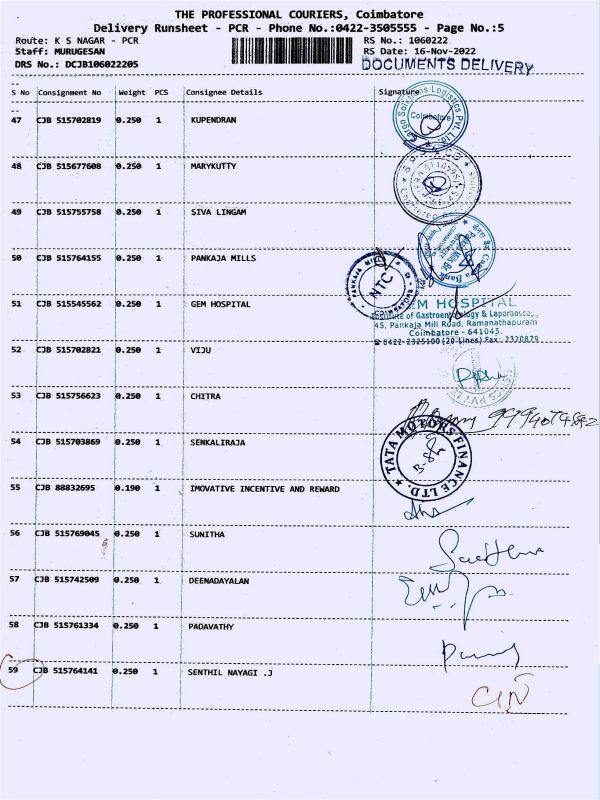 THE PROFESSIONAL COURIERS, Coimbatore
Delivery Runsheet - PCR - Phone No.:0422-3505555 - Page No.:5
Route: K S NAGAR - PCR RS No.: 1060222
Staff: MURUGESAN RS Date: 16-Nov-2022
DRS No.: DCJB106022205 DOCUMENTS DELIVERY
S No Consignment No Weight PCS Consignee Details Signature
47 CJB 515702819 0.250 1 KUPENDRAN
Coimbatore
48 CJB 515677608 0.250 1 MARYKUTTY
49 CJB 515755758 0.250 1 SIVA LINGAM
50 CJB 515764155 0.250 1 PANKAJA MILLS
NTC
51 CJB 515545562 0.250 1 GEM HOSPITAL
GEM HOSPITAL
Institute of Gastroenterology & Laparosco
45, Pankaja Mill Road, Ramanathapuram
Coimbatore - 641045.
0422-2325100 (20 Lines) Fax: 2320879
52 CJB 515702821 0.250 1 VIJU
53 CJB 515756623 0.250 1 CHITRA
54 CJB 515703869 0.250 1 SENKALIRAJA
TATA MOTORS FINANCE LTD.
55 CJB 88832695 0.190 1 IMOVATIVE INCENTIVE AND REWARD
56 CJB 515769045 0.250 1 SUNITHA
57 CJB 515742509 0.250 1 DEENADAYALAN
58 CJB 515761334 0.250 1 PADAVATHY
59 CJB 515764141 0.250 1 SENTHIL NAYAGI .J